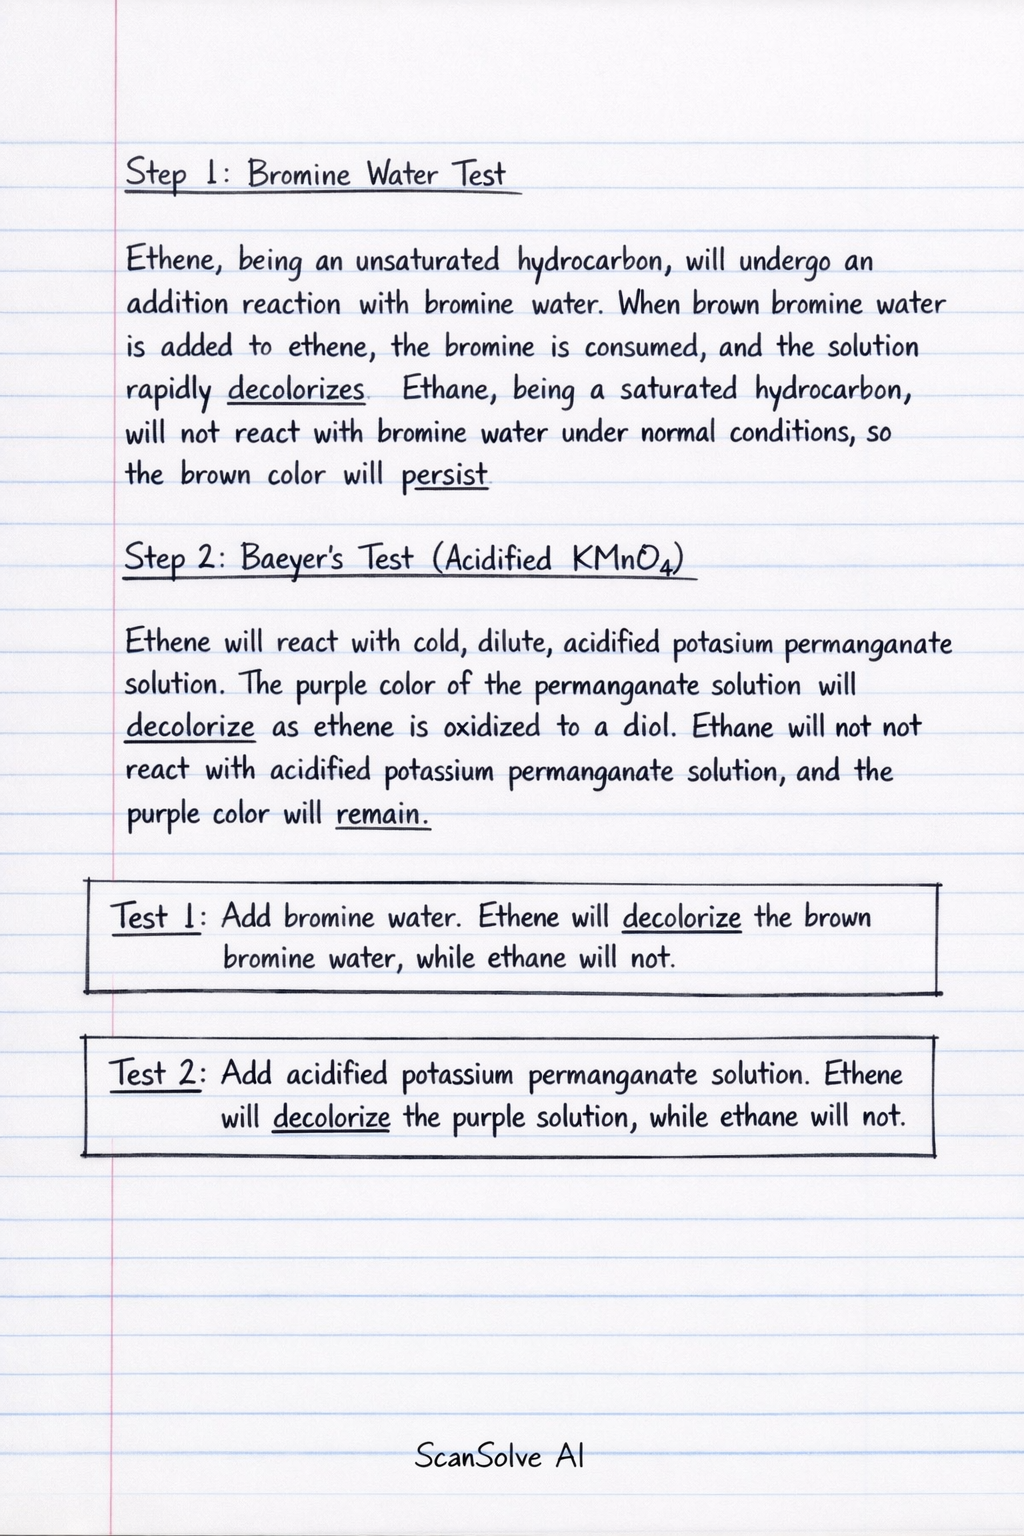 Step 1: Bromine Water Test
Ethene, being an unsaturated hydrocarbon, will undergo an
addition reaction with bromine water. When brown bromine water
is added to ethene, the bromine is consumed, and the solution
rapidly decolorizes. Ethane, being a saturated hydrocarbon,
will not react with bromine water under normal conditions, so
the brown color will persist.
Step 2: Baeyer's Test (Acidified KMnO₄)
Ethene will react with cold, dilute, acidified potasium permanganate
solution. The purple color of the permanganate solution will
decolorize as ethene is oxidized to a diol. Ethane will not not
react with acidified potassium permanganate solution, and the
purple color will remain.
Test 1: Add bromine water. Ethene will decolorize the brown
bromine water, while ethane will not.
Test 2: Add acidified potassium permanganate solution. Ethene
will decolorize the purple solution, while ethane will not.
ScanSolve AI